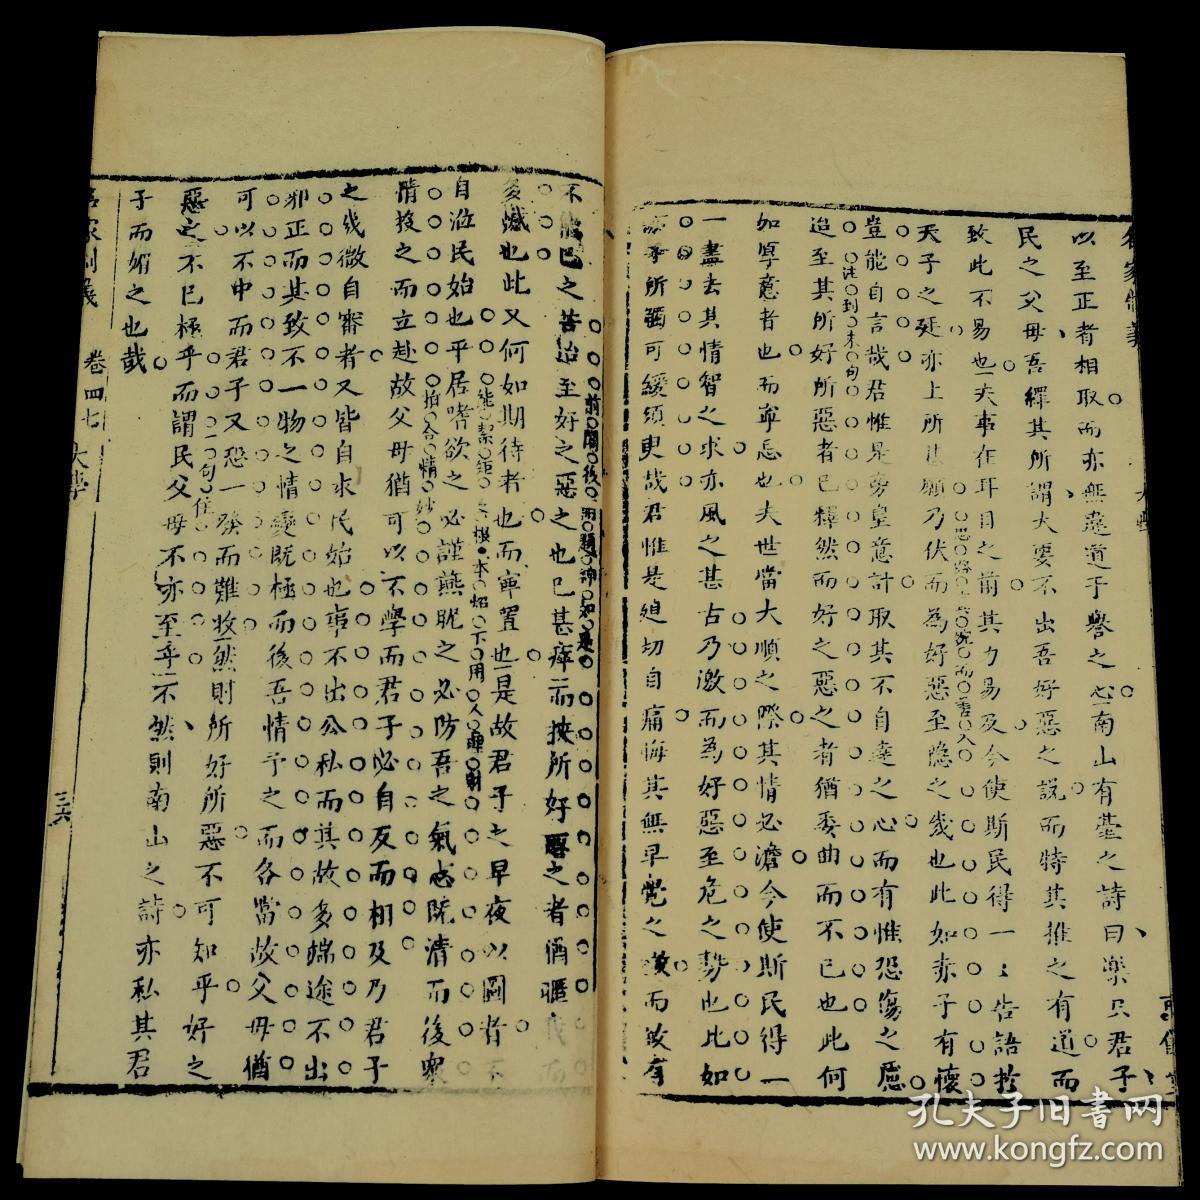 以至正者相取而亦無違道于譽之心南山有臺之詩曰樂只君子
民之父母吾繹其所謂大要不出吾好惡之說而特其推之有道而
致此不易也夫事在耳目之前其力易及今使斯民得一一告語於
天子之廷亦上所甚願乃伏而為好惡至隐之幾也此如赤子有懷
豈能自言哉君惟是旁皇意計取其不自達之心而有惟恐傷之慮
迨至其所好所惡者已釋然而好之惡之者猶委曲而不已也此何
如厚意者也而寧忍也夫世當大順之際其情必澹今使斯民得一
一盡去其情智之求亦風之甚古乃激而為好惡至危之勢也此如
所猶可緩須臾哉君惟是廹切自痛悔其無早覺之而故有
不能已之苦迨至好之惡之也已甚瘁而挾所好惡之者酒
憾也此又何如期待者也而寧置也是故君子之早夜以圖者不
自涖民始也平居嗜欲之必謹燕眤之必防吾之氣志既清而後衆
情投之而立赴故父母猶可以不學而君子必自反而相及乃君子
之幾微自審者又皆自求民始也事不出公私而其故多端途不出
邪正而其致不一物之情變既極而後吾情予之而各當故父母猶
可以不中而君子又恐一發而難收然則所好所惡不可知乎好之
惡之不已極乎而謂民父母不亦至乎不然則南山之詩亦私其君
子而媚之也哉
卷四七 大學
三六
孔夫子旧书网
www.kongfz.com